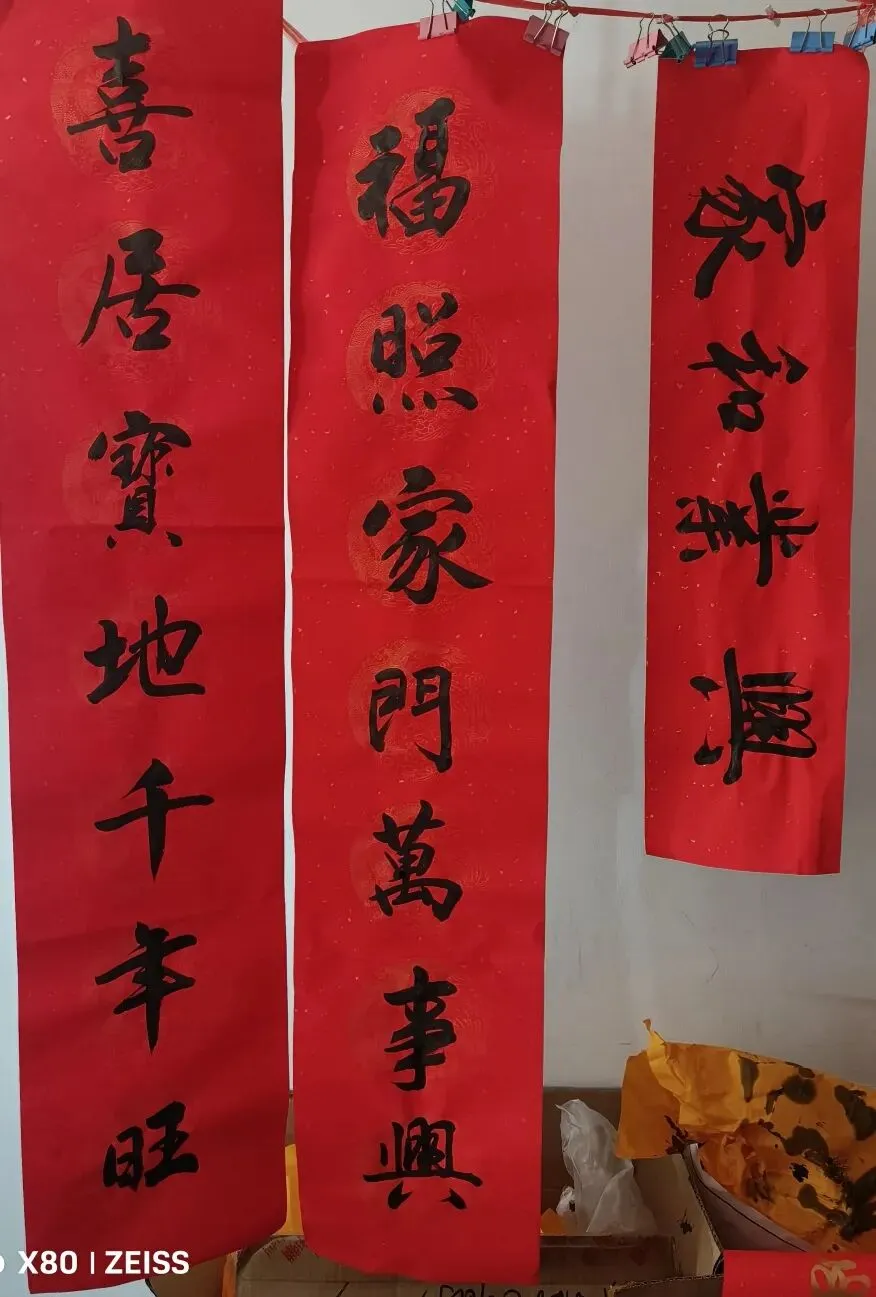 喜居寶地千年旺
福照家門萬事興
家和業興
X80 | ZEISS